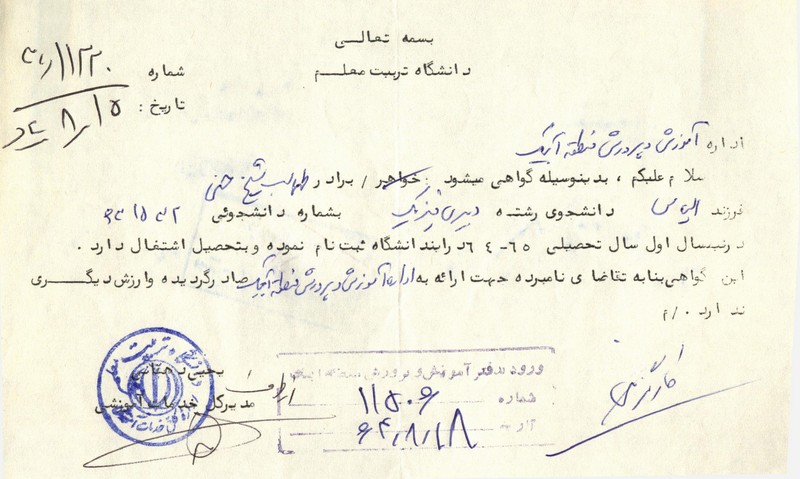 بسمه تعالی
دانشگاه تربیت معلم
شماره ۱۱۲۲۰
تاریخ : ۶۴/۸/۱۵
اداره آموزش و پرورش منطقه آبیک
سلام علیکم ، بدینوسیله گواهی میشود : خواهر / برادر طهماسب شیخ حنی
فرزند الیاس دانشجوی رشته دبیری فیزیک بشماره دانشجوئی
درنیمسال اول سال تحصیلی ۶۵-۶۴ در این دانشگاه ثبت نام نموده و بتحصیل اشتغال دارد .
این گواهی بنا به تقاضای نامبرده جهت ارائه به اداره آموزش و پرورش منطقه آبیک صادر گردیده و ارزش دیگری
ندارد ۰/م
یحیی دهقانی
مدیر کل خدمات آموزشی
از طرف
دانشگاه تربیت معلم
اداره کل خدمات آموزشی
ورود بدفتر آموزش و پرورش منطقه آبیک
شماره ۱۱۵۰۶
تاریخ ۶۴/۸/۱۸
کارگزینی